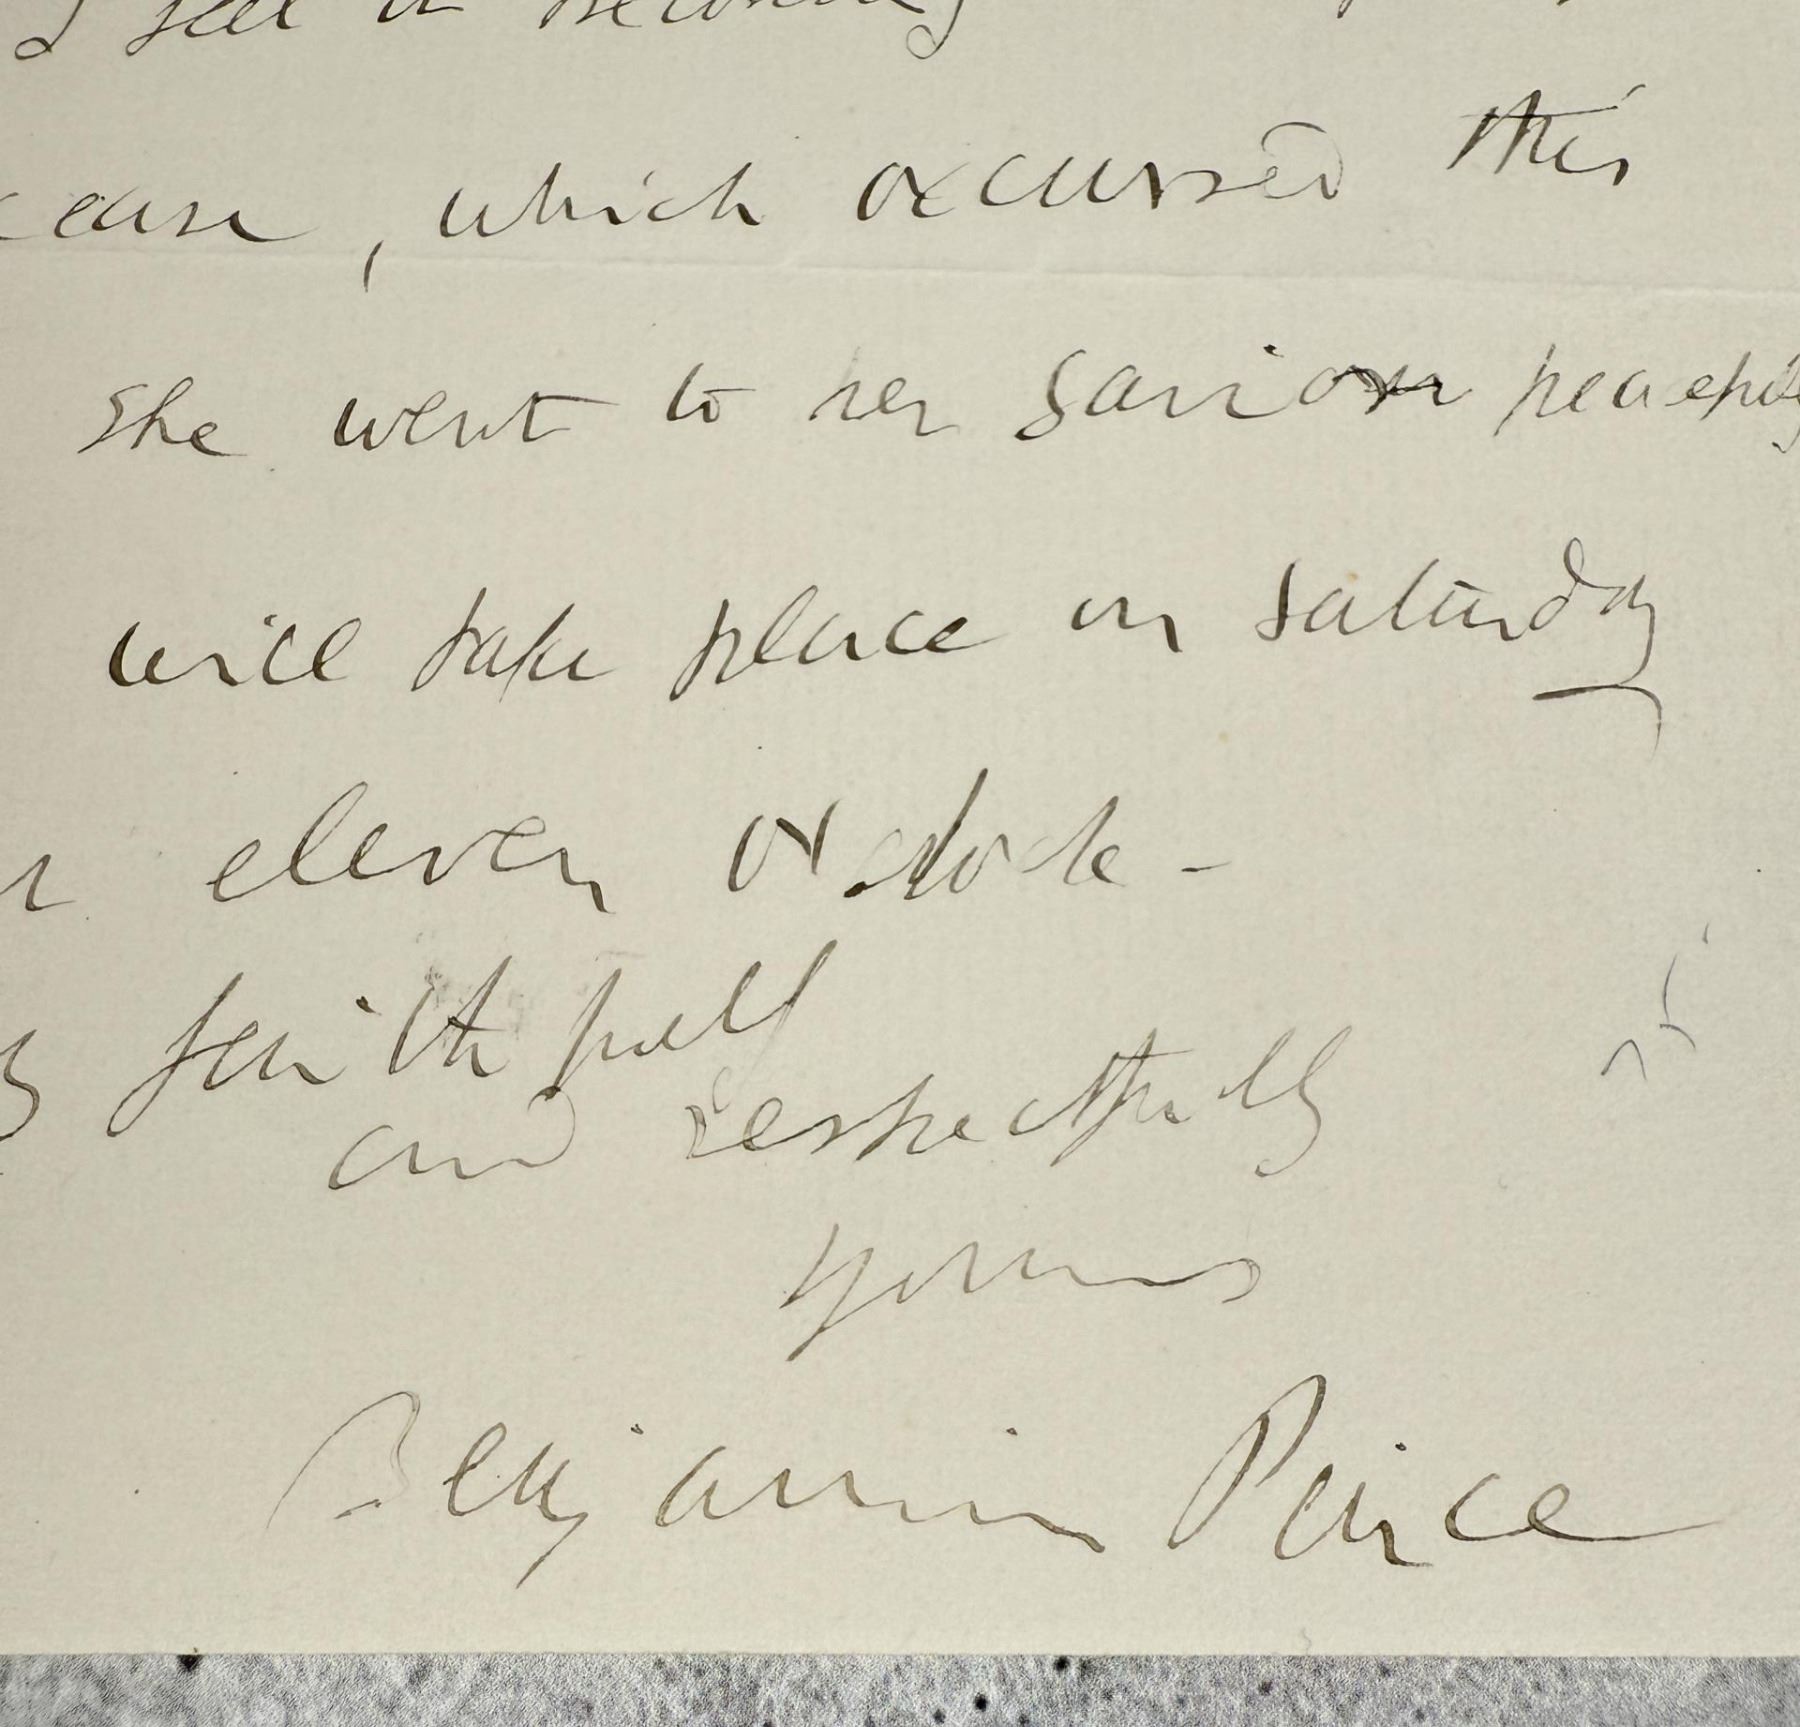 I feel in
cease, which occurred this
She went to her Savior peacefully
will take place on Saturday
eleven o'clock -
faithfull
and respectfully
yours
Benjamin Peirce